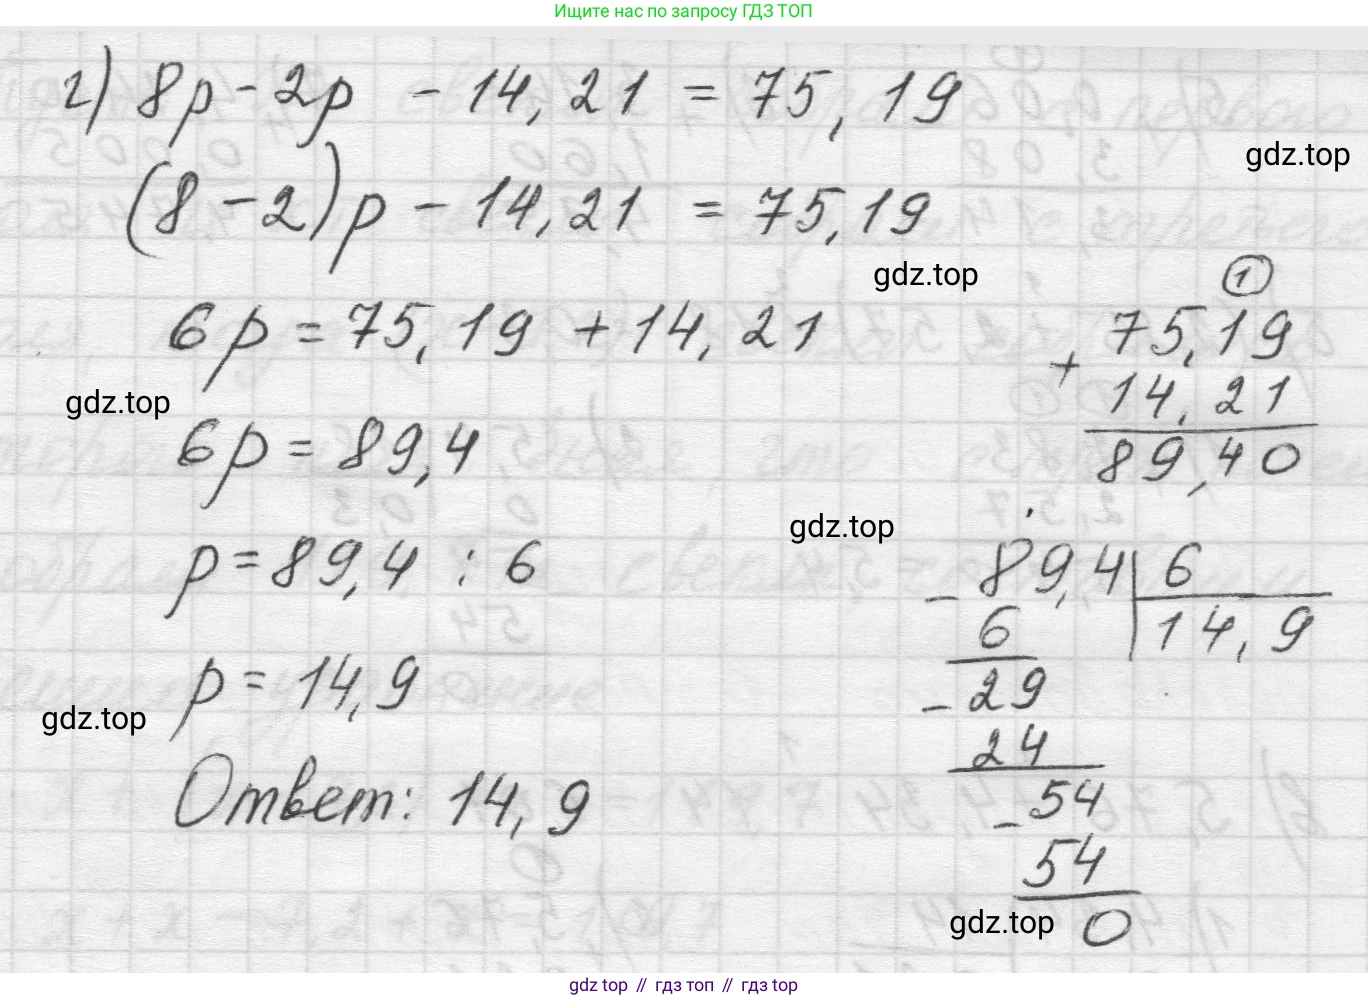 Ищите нас по запросу ГДЗ ТОП
г) 8p - 2p - 14,21 = 75,19
gdz.top
(8 - 2)p - 14,21 = 75,19
gdz.top
6p = 75,19 + 14,21
gdz.top
6p = 89,4
gdz.top
p = 89,4 : 6
p = 14,9
gdz.top
Ответ: 14,9
1
75,19
+
14,21
89,40
- 89,4 | 6
6 | 14,9
- 29
24
- 54
54
gdz.top
0
gdz top // гдз топ // гдз top